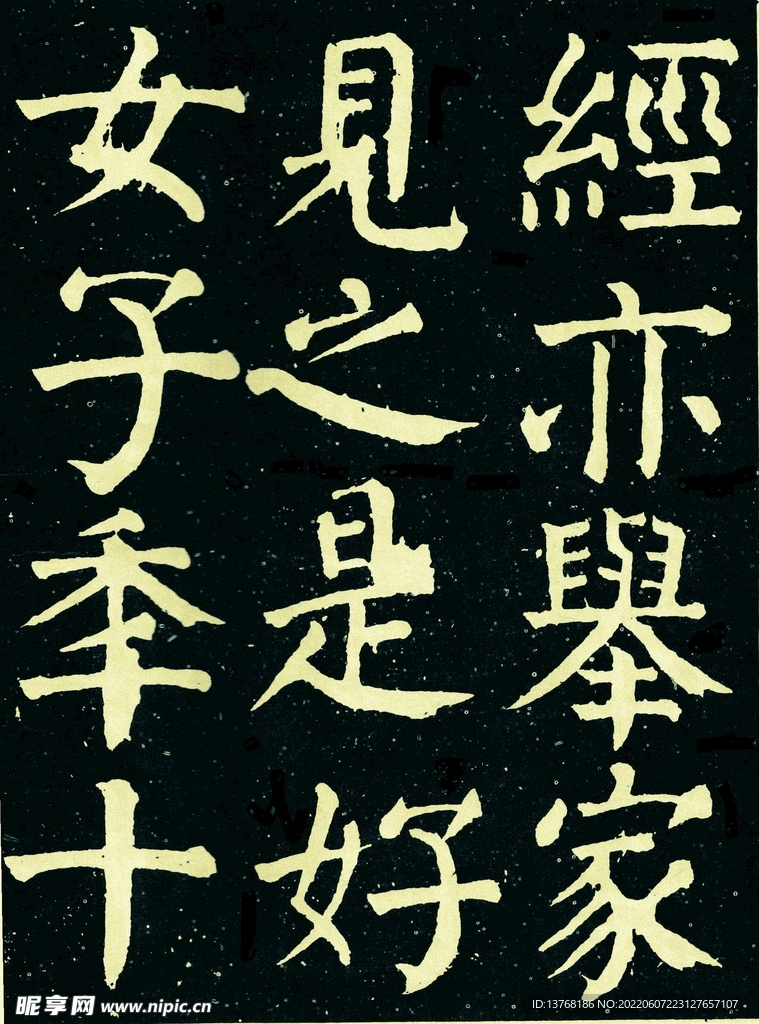 經亦舉家
見之是好
女子季十
昵享网 www.nipic.cn
ID:13768186 NO:20220607223127657107